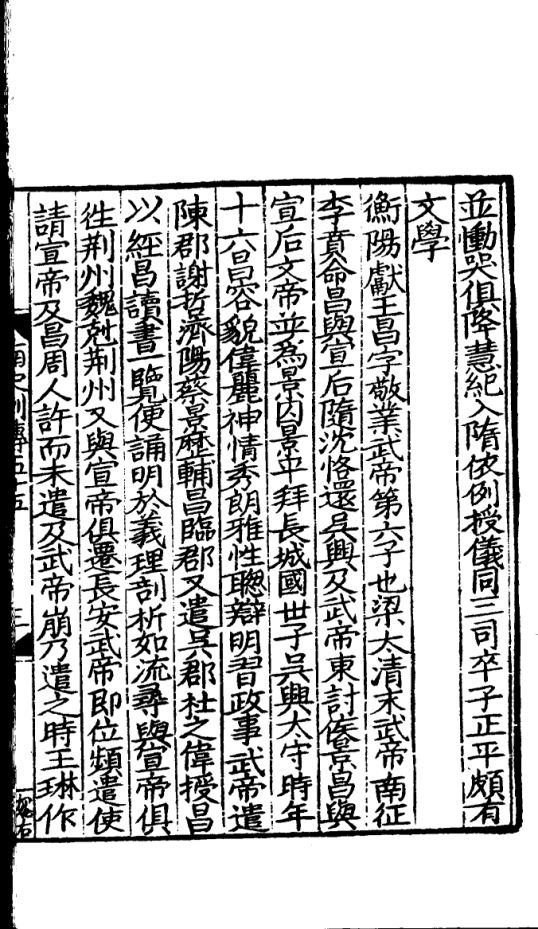 並慟哭俱降慧紀入隋依例授儀同三司卒子正平頗有
文學
衡陽獻王昌字敬業武帝第六子也梁太清末武帝南征
李賁命昌與宣后隨沈恪還吳興及武帝東討侯景昌與
宣后文帝並為景囚景平拜長城國世子吳興太守時年
十六昌容貌偉麗神情秀朗雅性聰辯明習政事武帝遣
陳郡謝哲濟陽蔡景歷輔昌臨郡又遣吳郡杜之偉授昌
以經昌讀書一覽便誦明於義理剖析如流尋與宣帝俱
徃荆州魏尅荆州又與宣帝俱遷長安武帝即位頻遣使
請宣帝及昌周人許而未遣及武帝崩乃遣之時王琳作
南史列傳五十五